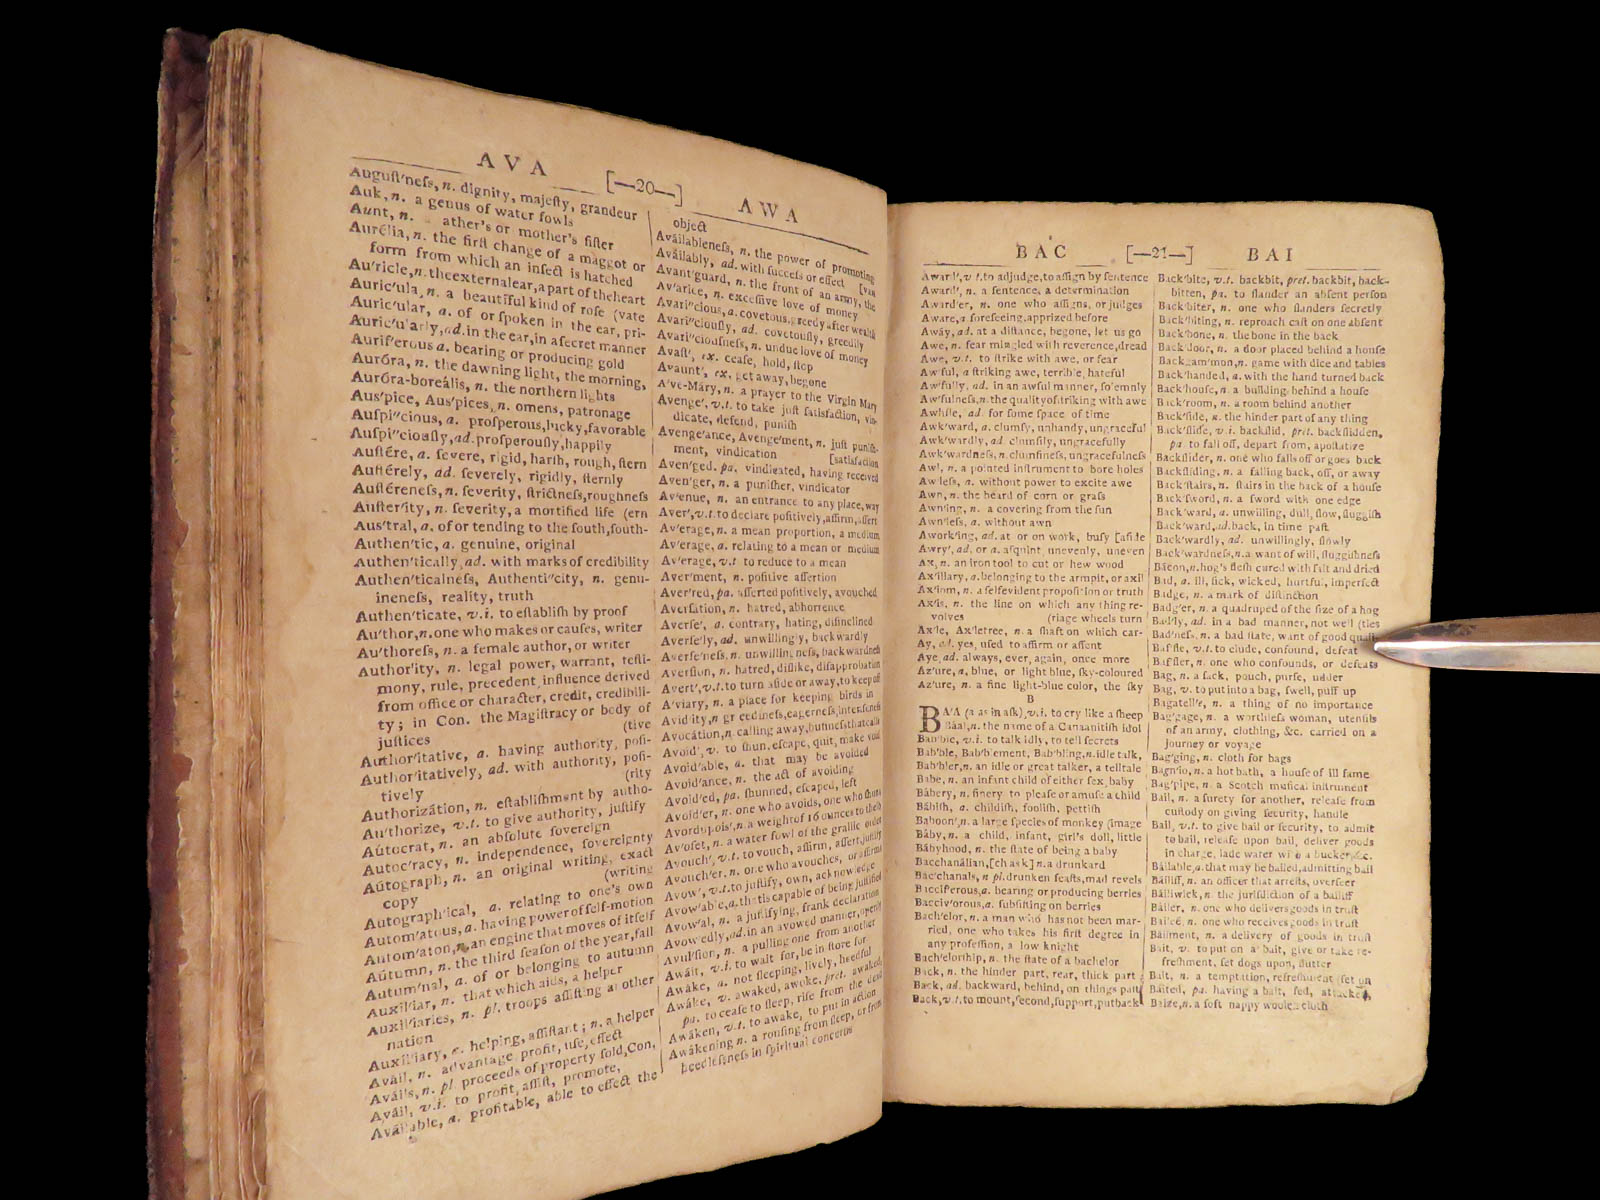 AVA [—20—] AWA
Auguſt'neſs, n. dignity, majeſty, grandeur
Auk, n. a genus of water fowls
Aunt, n. ather's or mother's ſiſter
Aurélia, n. the firſt change of a maggot or
form from which an inſect is hatched
Au'ricle, n. the external ear, a part of the heart
Auric'ula, n. a beautiful kind of roſe (vate
Auric'ular, a. of or ſpoken in the ear, pri-
Auric'ularly, ad. in the ear, in a ſecret manner
Aurif'erous a. bearing or producing gold
Auróra, n. the dawning light, the morning,
Auróra-boreális, n. the northern lights
Aus'pice, Aus'pices, n. omens, patronage
Auſpi"cious, a. proſperous, lucky, favorable
Auſpi"ciouſly, ad. proſperouſly, happily
Auſtére, a. ſevere, rigid, harſh, rough, ſtern
Auſtérely, ad. ſeverely, rigidly, ſternly
Auſtéreneſs, n. ſeverity, ſtrictneſs, roughneſs
Auſter'ity, n. ſeverity, a mortified life (ern
Aus'tral, a. of or tending to the ſouth, ſouth-
Authen'tic, a. genuine, original
Authen'tically, ad. with marks of credibility
Authen'ticalneſs, Authenti"city, n. genu-
ineneſs, reality, truth
Authen'ticate, v.t. to eſtabliſh by proof
Au'thor, n. one who makes or cauſes, writer
Au'thoreſs, n. a female author, or writer
Author'ity, n. legal power, warrant, teſti-
mony, rule, precedent, influence derived
from office or character, credit, credibili-
ty; in Con. the Magiſtracy or body of
juſtices (tive
Author'itative, a. having authority, poſi-
Author'itatively, ad. with authority, poſi-
tively (rity
Authorizátion, n. eſtabliſhment by autho-
Au'thorize, v.t. to give authority, juſtify
Aútocrat, n. an abſolute ſovereign
Autoc'racy, n. independence, ſovereignty
Aútograph, n. an original writing, exact
copy (writing
Autograph'ical, a. relating to one's own
Autom'atous, a. having power of ſelf-motion
Autom'aton, n. an engine that moves of itſelf
Aútumn, n. the third ſeaſon of the year, fall
Autum'nal, a. of or belonging to autumn
Auxil'iar, n. that which aids, a helper
Auxil'iaries, n. pl. troops aſſiſting another
nation
Auxil'iary, a. helping, aſſiſtant; n. a helper
Aváil, n. advantage profit, uſe, effect
Aváils, n. pl. proceeds of property ſold, Con.
Aváil, v.i. to profit, aſſiſt, promote,
Aváilable, a. profitable, able to effect the
object
Aváilableneſs, n. the power of promoting
Aváilably, ad. with ſucceſs or effect [van
Avant'guard, n. the front of an army, the
Av'arice, n. exceſſive love of money
Avari"cious, a. covetous, greedy after wealth
Avari"ciouſly, ad. covetouſly, greedily
Avari"ciouſneſs, n. undue love of money
Avaſt', ex. ceaſe, hold, ſtop
Avaunt', ex. get away, begone
A've-Máry, n. a prayer to the Virgin Mary
Avenge', v.t. to take juſt ſatisfaction, vin-
dicate, defend, puniſh
Avenge'ance, Avenge'ment, n. juſt puniſh-
ment, vindication [satisfaction
Aven'ged, pa. vindicated, having received
Aven'ger, n. a puniſher, vindicator
Av'enue, n. an entrance to any place, way
Aver', v.t. to declare poſitively, affirm, aſſert
Av'erage, n. a mean proportion, a medium
Av'erage, a. relating to a mean or medium
Av'erage, v.t to reduce to a mean
Aver'ment, n. poſitive aſſertion
Aver'red, pa. aſſerted poſitively, avouched
Averſátion, n. hatred, abhorrence
Averſe', a. contrary, hating, diſinclined
Averſe'ly, ad. unwillingly, backwardly
Averſe'neſs, n. unwillingneſs, backwardneſs
Averſion, n. hatred, diſlike, diſapprobation
Avert', v.t. to turn aſide or away, to keep off
A'viary, n. a place for keeping birds in
Avid'ity, n greedineſs, eagerneſs, intenſeneſs
Avocátion, n calling away, buſineſs, that calls
Avoid', v. to ſhun, eſcape, quit, make void
Avoid'able, a. that may be avoided
Avoid'ance, n. the act of avoiding
Avoid'ed, pa. ſhunned, eſcaped, left
Avoid'er, n. one who avoids, one who ſhuns
Avordupois', n. a weight of 16 ounces to the lb
Av'oſet, n. a water fowl of the grallic order
Avouch', v.t. to vouch, affirm, aſſert, juſtify
Avouch'er, n. one who avouches, or affirms
Avow', v.t. to juſtify, own, acknowledge
Avow'able, a. that is capable of being juſtified
Avow'al, n. a juſtifying, frank declaration
Avow'edly, ad. in an avowed manner, openly
Avulſion, n. a pulling one from another
Awáit, v.t. to wait for, be in ſtore for
Awáke, a. not ſleeping, lively, heedful
Awáke, v. awaked, awoke, pret. awaked,
pa. to ceaſe to ſleep, riſe from the dead
Awáken, v.t. to awake, to put in action
Awákening n. a rouſing from ſleep, or from
heedleſsneſs in ſpiritual concerns
BAC [—21—] BAI
Award', v t. to adjudge, to aſſign by ſentence
Award', n. a ſentence, a determination
Award'er, n. one who aſſigns, or judges
Aware, a foreſeeing, apprized before
Awáy, ad. at a diſtance, begone, let us go
Awe, n. fear mingled with reverence, dread
Awe, v.t. to ſtrike with awe, or fear
Aw'ful, a ſtriking awe, terrible, hateful
Aw'fully, ad. in an awful manner, ſolemnly
Aw'fulneſs, n. the quality of ſtriking with awe
Awhile, ad. for ſome ſpace of time
Awk'ward, a. clumſy, unhandy, ungraceful
Awk'wardly, ad. clumſily, ungracefully
Awk'wardneſs, n. clumſineſs, ungracefulneſs
Awl, n. a pointed inſtrument to bore holes
Aw'leſs, n. without power to excite awe
Awn, n. the beard of corn or graſs
Awn'ing, n. a covering from the ſun
Awn'leſs, a. without awn
Awork'ing, ad. at or on work, buſy [aſide
Awry', ad. or a. aſquint, unevenly, uneven
Ax, n. an iron tool to cut or hew wood
Ax'illary, a. belonging to the armpit, or axil
Ax'iom, n. a ſelfevident propoſition or truth
Ax'is, n. the line on which any thing re-
volves (riage wheels turn
Ax'le, Ax'letree, n. a ſhaft on which car-
Ay, ad. yes, uſed to affirm or aſſent
Aye, ad. always, ever, again, once more
Az'ure, a, blue, or light blue, ſky-coloured
Az'ure, n. a fine light-blue color, the ſky
B
BA'A (a as in aſk), v.i. to cry like a ſheep
Báal, n. the name of a Canaanitiſh idol
Bab'ble, v.i. to talk idly, to tell ſecrets
Bab'ble, Bab'blement, Bab'bling, n. idle talk,
Bab'bler, n. an idle or great talker, a telltale
Babe, n. an infant child of either ſex, baby
Bábery, n. finery to pleaſe or amuſe a child
Bábiſh, a. childiſh, fooliſh, pettiſh
Baboon', n. a large ſpecies of monkey (image
Báby, n. a child, infant, girl's doll, little
Bábyhood, n. the ſtate of being a baby
Bacchanálian, [ch as k] n. a drunkard
Bac'chanals, n pl. drunken feaſts, mad revels
Bacciferous, a. bearing or producing berries
Bacciv'orous, a. ſubſiſting on berries
Bach'elor, n. a man who has not been mar-
ried, one who takes his firſt degree in
any profeſſion, a low knight
Bach'elorſhip, n. the ſtate of a bachelor
Back, n. the hinder part, rear, thick part
Back, ad. backward, behind, on things paſt
Back, v.t. to mount, ſecond, ſupport, put back
Back'bite, v.t. backbit, pret. backbit, back-
bitten, pa. to ſlander an abſent perſon
Back'biter, n. one who ſlanders ſecretly
Back'biting, n. reproach caſt on one abſent
Back'bone, n. the bone in the back
Back'door, n. a door placed behind a houſe
Backgam'mon, n. game with dice and tables
Back'handed, a. with the hand turned back
Back'houſe, n. a building behind a houſe
Back'room, n. a room behind another
Back'ſide, n. the hinder part of any thing
Back'ſlide, v.i. backſlid, pret. backſlidden,
pa. to fall off, depart from, apoſtatize
Backſlider, n. one who falls off or goes back
Backſliding, n. a falling back, off, or away
Back'ſtairs, n. ſtairs in the back of a houſe
Back'ſword, n. a ſword with one edge
Back'ward, a. unwilling, dull, ſlow, ſluggiſh
Back'ward, ad. back, in time paſt
Back'wardly, ad. unwillingly, ſlowly
Back'wardneſs, n. a want of will, ſluggiſhneſs
Bácon, n. hog's fleſh cured with ſalt and dried
Bad, a. ill, ſick, wicked, hurtful, imperfect
Badge, n. a mark of diſtinction
Badg'er, n. a quadruped of the ſize of a hog
Bad'ly, ad. in a bad manner, not well (ties
Bad'neſs, n. a bad ſtate, want of good quali-
Baf'fle, v.t. to elude, confound, defeat
Baf'fler, n. one who confounds, or defeats
Bag, n. a ſack, pouch, purſe, udder
Bag, v. to put into a bag, ſwell, puff up
Bagatelle', n. a thing of no importance
Bag'gage, n. a worthleſs woman, utenſils
of an army, clothing, &c. carried on a
journey or voyage
Bag'ging, n. cloth for bags
Bagn'io, n. a hot bath, a houſe of ill fame
Bag'pipe, n. a Scotch muſical inſtrument
Bail, n. a ſurety for another, releaſe from
cuſtody on giving ſecurity, handle
Bail, v.t. to give bail or ſecurity, to admit
to bail, releaſe upon bail, deliver goods
in charge, lade water with a bucket, &c.
Báilable, a. that may be bailed, admitting bail
Báiliff, n. an officer that arreſts, overſeer
Báiliwick, n. the juriſdiction of a bailiff
Báiler, n. one who delivers goods in truſt
Báileé, n. one who receives goods in truſt
Báilment, n. a delivery of goods in truſt
Bait, v. to put on a bait, give or take re-
freſhment, ſet dogs upon, flutter
Bait, n. a temptation, refreſhment (ſet on
Báited, pa. having a bait, fed, attacked,
Baize, n. a ſoft nappy woolen cloth